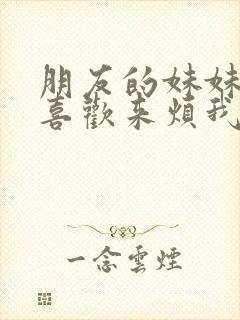 朋友的妹妹
喜歡来煩我
一念雲煙